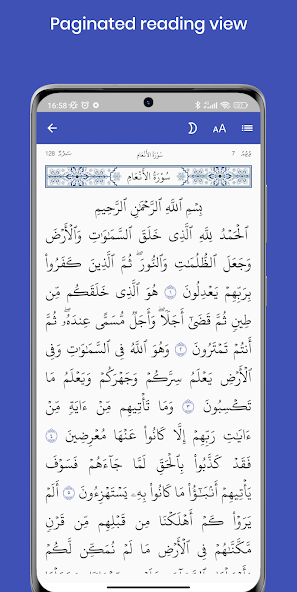 Paginated reading view
16:58
7 جُزْء سُورَةُ الأَنْعَامِ 128
سُورَةُ الأَنْعَامِ
بِسْمِ ٱللَّهِ ٱلرَّحْمَٰنِ ٱلرَّحِيمِ
ٱلْحَمْدُ لِلَّهِ ٱلَّذِى خَلَقَ ٱلسَّمَٰوَٰتِ وَٱلْأَرْضَ
وَجَعَلَ ٱلظُّلُمَٰتِ وَٱلنُّورَ ۖ ثُمَّ ٱلَّذِينَ كَفَرُوا۟
بِرَبِّهِمْ يَعْدِلُونَ ١ هُوَ ٱلَّذِى خَلَقَكُم مِّن
طِينٍ ثُمَّ قَضَىٰٓ أَجَلًا ۖ وَأَجَلٌ مُّسَمًّى عِندَهُۥ ۖ ثُمَّ
أَنتُمْ تَمْتَرُونَ ٢ وَهُوَ ٱللَّهُ فِى ٱلسَّمَٰوَٰتِ وَفِى
ٱلْأَرْضِ ۖ يَعْلَمُ سِرَّكُمْ وَجَهْرَكُمْ وَيَعْلَمُ مَا
تَكْسِبُونَ ٣ وَمَا تَأْتِيهِم مِّنْ ءَايَةٍ مِّنْ
ءَايَٰتِ رَبِّهِمْ إِلَّا كَانُوا۟ عَنْهَا مُعْرِضِينَ ٤
فَقَدْ كَذَّبُوا۟ بِٱلْحَقِّ لَمَّا جَآءَهُمْ ۖ فَسَوْفَ
يَأْتِيهِمْ أَنۢبَٰٓؤُا۟ مَا كَانُوا۟ بِهِۦ يَسْتَهْزِءُونَ ٥ أَلَمْ
يَرَوْا۟ كَمْ أَهْلَكْنَا مِن قَبْلِهِم مِّن قَرْنٍ
مَّكَّنَّٰهُمْ فِى ٱلْأَرْضِ مَا لَمْ نُمَكِّن لَّكُمْ